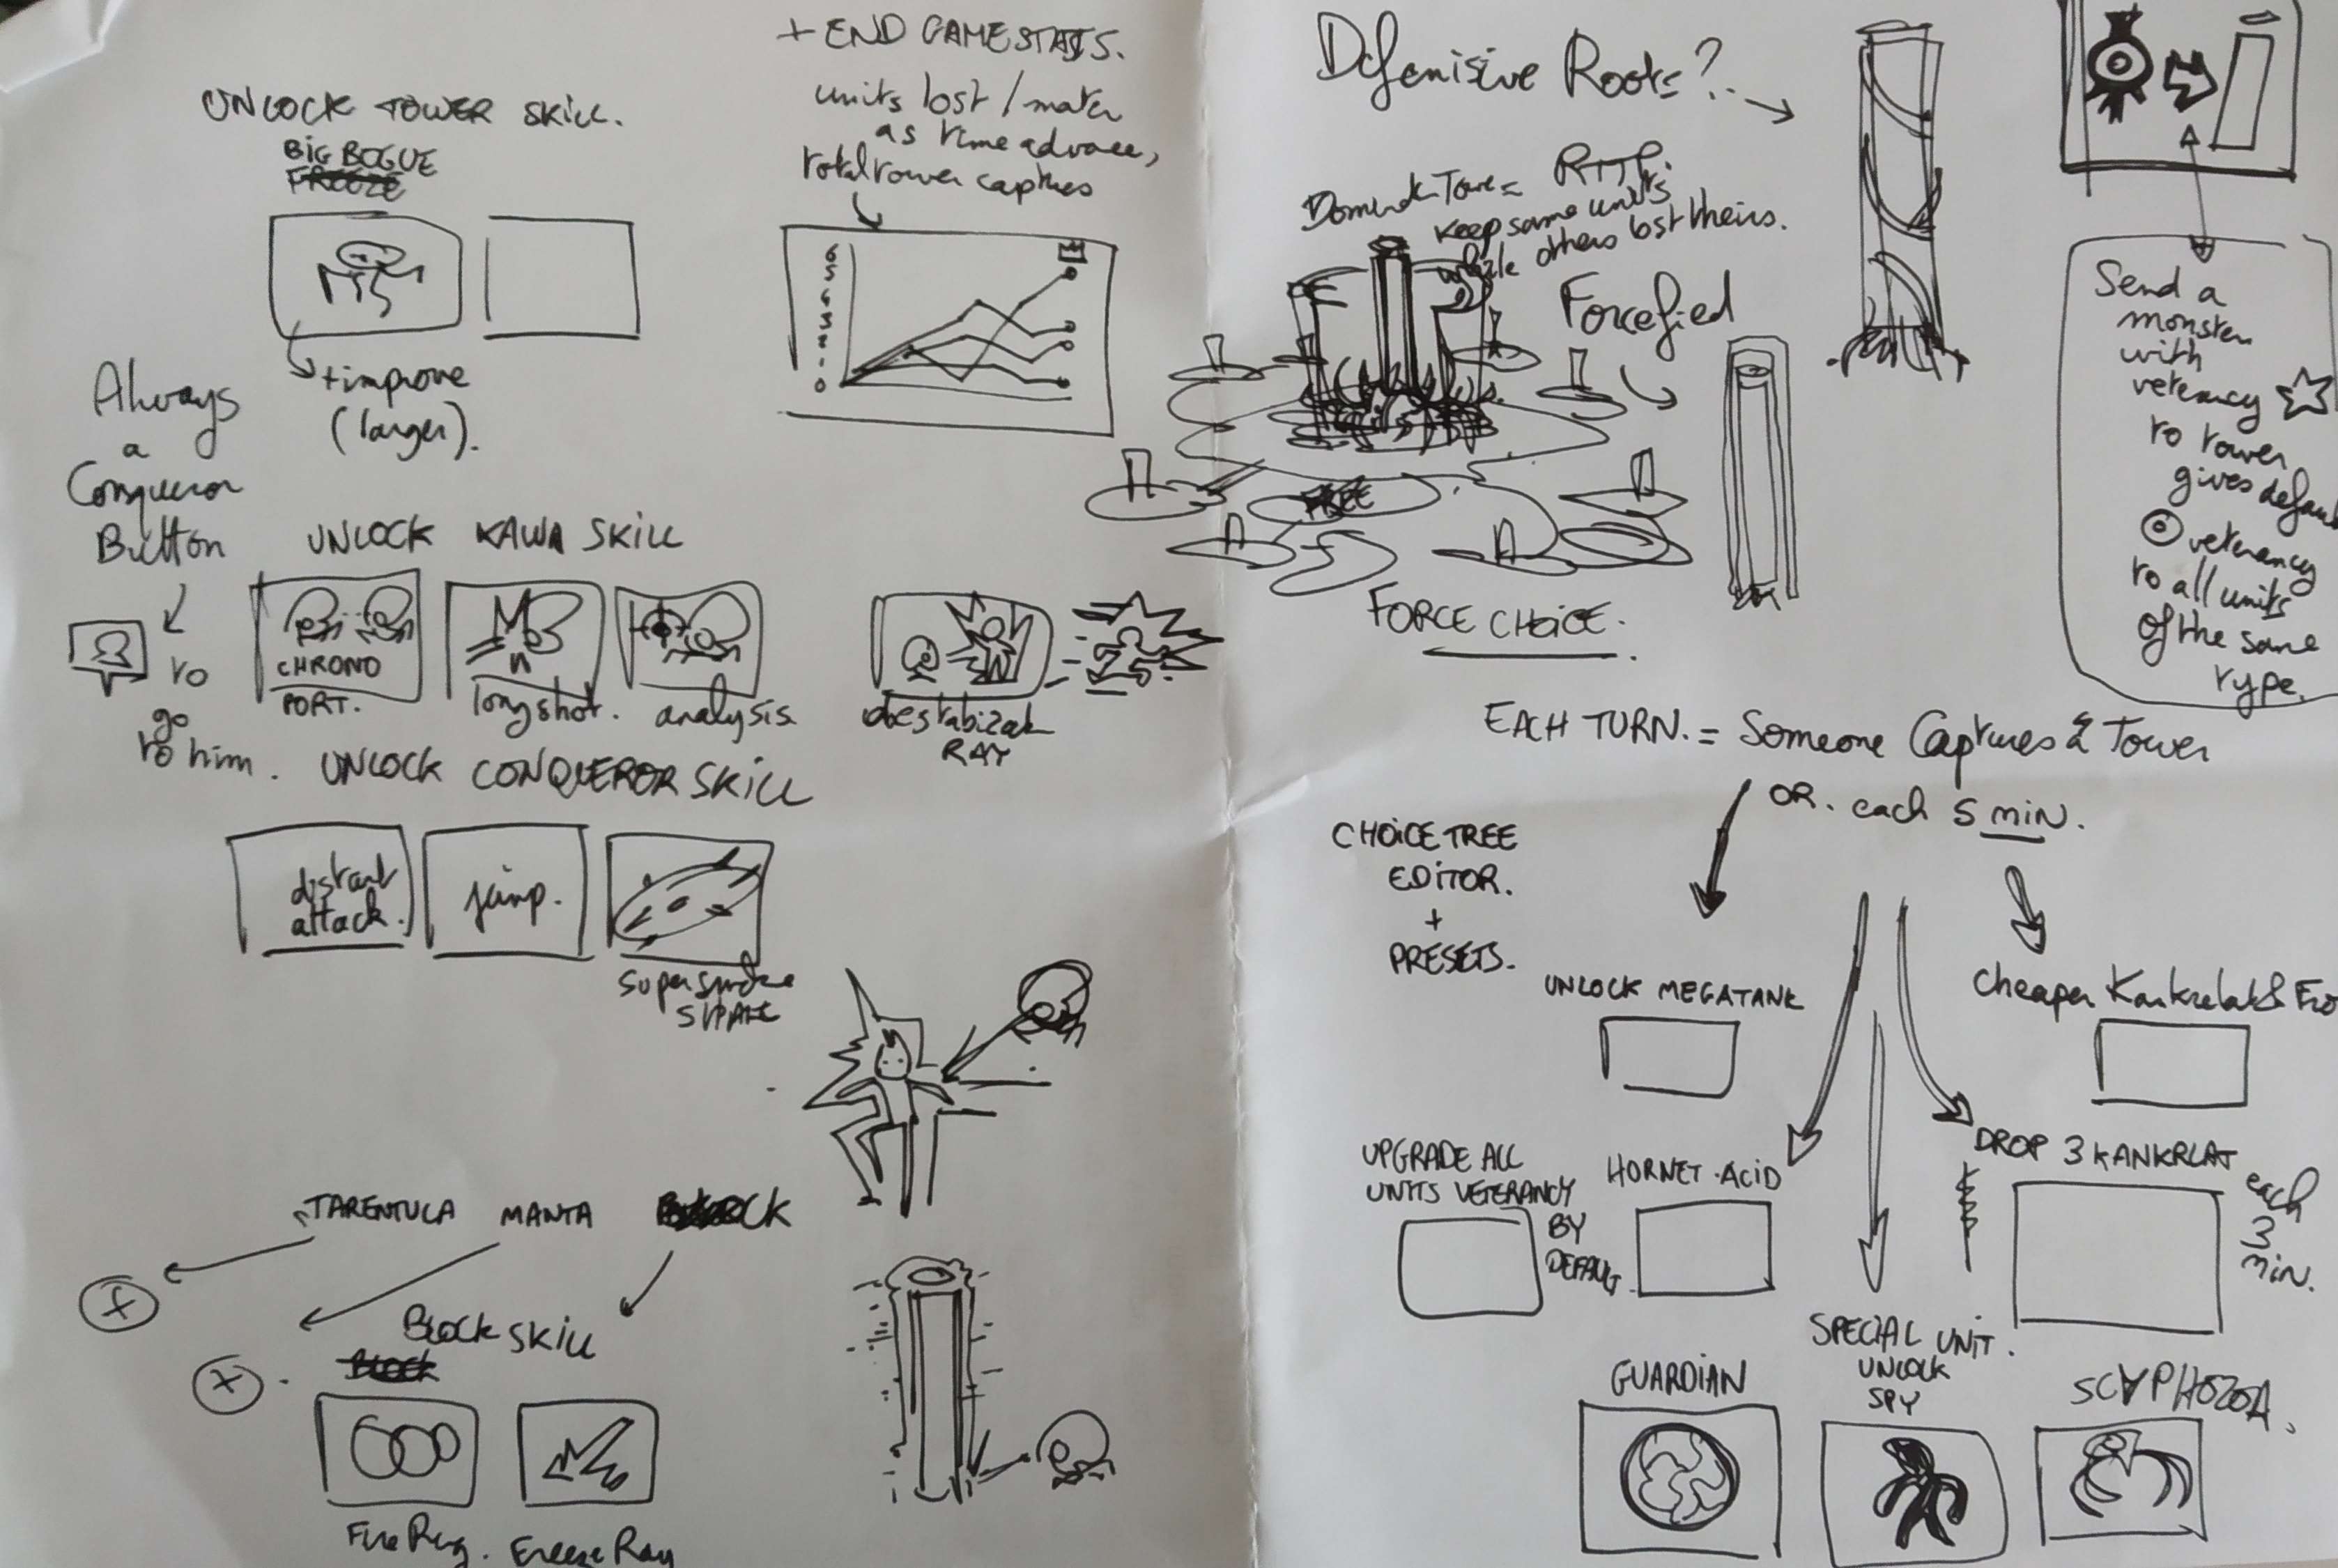 + END GAME STATS.
units lost /
as time advance,
total tower captures
6
5
3
2
1
0
UNLOCK TOWER SKILL.
BIG BOGUE
FREEZE
+ improve
(larger).
Always
a
Conqueror
Button
to
go
to him.
UNLOCK KAWA SKILL
CHRONO
PORT.
longshot.
analysis.
RAY
UNLOCK CONQUEROR SKILL
distant
attack.
jump.
super smoke
TARENTULA MANTA
BLOCK SKILL
Block
Fire Ring. Freeze Ray
Defensive Roots?
RTTP.
keep same units
while others lost theirs.
Forcefied
FREE
FORCE CHOICE.
Send a
monster
with
veterancy
to tower
gives default
veterancy
to all units
of the same
type.
EACH TURN. = Someone Captures a Tower
OR. each 5 min.
CHOICE TREE
EDITOR.
+
PRESETS.
UNLOCK MEGATANK
Cheaper Kankrelat &
UPGRADE ALL
UNITS VETERANCY
BY
DEFAULT.
HORNET. ACID
DROP 3 KANKRLAT
each
3
min.
GUARDIAN
SPECIAL UNIT.
UNLOCK
SPY
SCYPHOZOA.